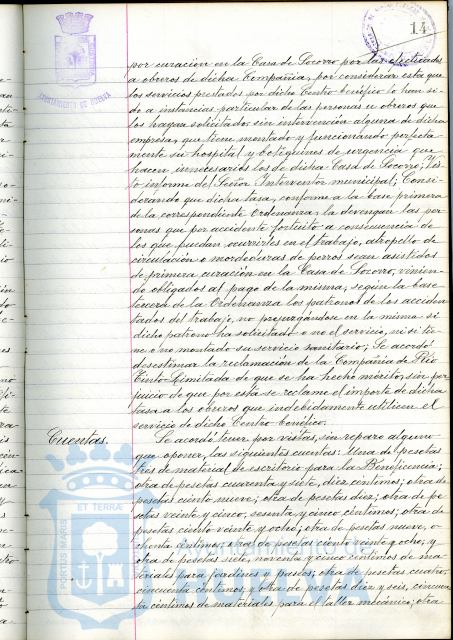 14
AYUNTAMIENTO DE HUELVA
por curación en la Casa de Socorro por las efectuadas
a obreros de dicha Compañía, por considerar esta que
los servicios prestados por dicho Centro benéfico lo han si-
do a instancias particular de las personas u obreros que
los hayan solicitado sin intervención alguna de dicha
empresa, que tiene montado y funcionando perfecta-
mente su hospital y botiquines de urgencia que
hacen innecesarios los de dicha Casa de Socorro; Vis-
to informe del Señor Interventor municipal; Consi-
derando que dicha tasa, conforme a la base primera
de la correspondiente Ordenanza, la devengan las per-
sonas que por accidente fortuito a consecuencia de
los que puedan ocurrirles en el trabajo, atropello de
circulación o mordeduras de perros sean asistidos
de primera curación en la Casa de Socorro, vinien-
do obligados al pago de la misma, según la base
tercera de la Ordenanza los patronos de los acciden-
tados del trabajo, no prejuzgándose en la misma si
dicho patrono ha solicitado o no el servicio, ni si tie-
ne o no montado su servicio sanitario; Se acordó
desestimar la reclamación de la Compañía de Río
Tinto Limitada de que se ha hecho mérito, sin per-
juicio de que por esta se reclame el importe de dicha
tasa a los obreros que indebidamente utilicen el
servicio de dicho Centro benéfico.
Cuentas.
Se acordó tener por vistas, sin reparo alguno
que oponer, las siguientes cuentas: Una de pesetas
tres de material de escritorio para la Beneficencia;
otra de pesetas cuarenta y siete, diez céntimos; otra de
pesetas ciento nueve; otra de pesetas diez; otra de pe-
setas veinte y cinco, sesenta y cinco céntimos; otra de
pesetas ciento veinte y ocho; otra de pesetas nueve, o-
chenta céntimos; otra de pesetas ciento veinte y ocho, y
otra de pesetas siete, noventa y cinco céntimos de ma-
teriales para jardines y paseos; otra de pesetas cuatro,
cincuenta céntimos y otra de pesetas diez y seis, cincuen-
ta céntimos de materiales para el taller mecánico; otra
PORTUS MARIS ET TERRÆ
Ayuntamiento de